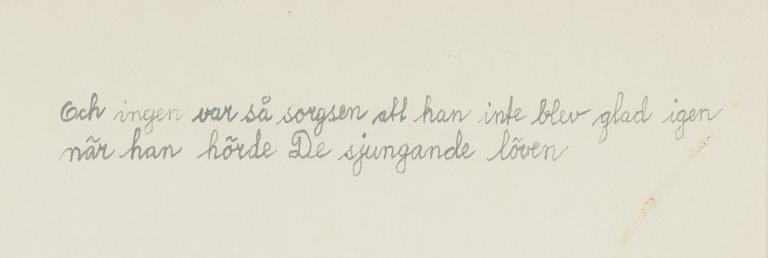 Och ingen var så sorgsen att han inte blev glad igen
när han hörde De sjungande löven